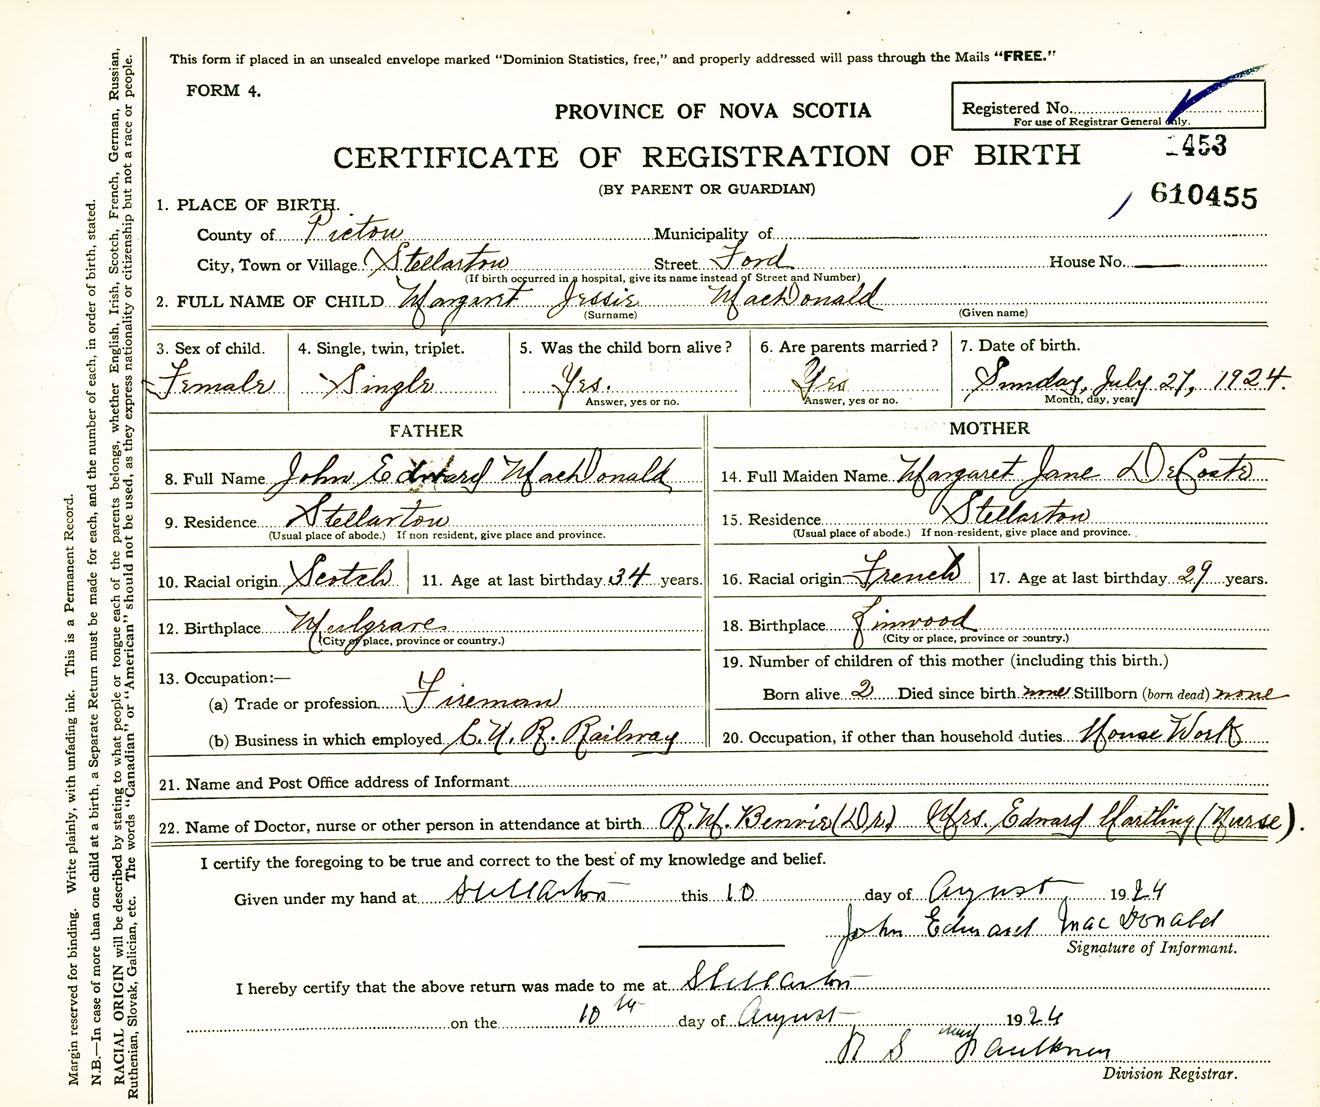 This form if placed in an unsealed envelope marked “Dominion Statistics, free,” and properly addressed will pass through the Mails “FREE.”
FORM 4.
PROVINCE OF NOVA SCOTIA
Registered No.
For use of Registrar General only.
CERTIFICATE OF REGISTRATION OF BIRTH
453
(BY PARENT OR GUARDIAN)
610455
1. PLACE OF BIRTH.
County of Pictou Municipality of
City, Town or Village Stellarton Street Ford House No.
(If birth occurred in a hospital, give its name instead of Street and Number)
2. FULL NAME OF CHILD Margaret Jessie MacDonald
(Surname) (Given name)
3. Sex of child. 4. Single, twin, triplet. 5. Was the child born alive? 6. Are parents married? 7. Date of birth.
Female Single Yes. Yes Sunday, July 27, 1924.
Answer, yes or no. Answer, yes or no. Month, day, year
FATHER MOTHER
8. Full Name John Edward MacDonald 14. Full Maiden Name Margaret Jane DeCoste
9. Residence Stellarton 15. Residence Stellarton
(Usual place of abode.) If non resident, give place and province. (Usual place of abode.) If non-resident, give place and province.
10. Racial origin Scotch 11. Age at last birthday 34 years. 16. Racial origin French 17. Age at last birthday 29 years.
12. Birthplace Mulgrave 18. Birthplace Linwood
(City or place, province or country.) (City or place, province or country.)
13. Occupation:— 19. Number of children of this mother (including this birth.)
(a) Trade or profession Fireman Born alive 2 Died since birth none Stillborn (born dead) none
(b) Business in which employed C.N.R. Railway 20. Occupation, if other than household duties House Work
21. Name and Post Office address of Informant
22. Name of Doctor, nurse or other person in attendance at birth R.M. Benvie (Dr.) Mrs. Edward Hartling (Nurse).
I certify the foregoing to be true and correct to the best of my knowledge and belief.
Given under my hand at Stellarton this 10 day of August 1924
John Edward MacDonald
Signature of Informant.
I hereby certify that the above return was made to me at Stellarton
on the 10th day of August 1924
R S Faulkner
Division Registrar.
Margin reserved for binding. Write plainly, with unfading ink. This is a Permanent Record.
N.B.—In case of more than one child at a birth, a Separate Return must be made for each, and the number of each, in order of birth, stated.
RACIAL ORIGIN will be described by stating to what people or tongue each of the parents belongs, whether English, Irish, Scotch, French, German, Russian,
Ruthenian, Slovak, Galician, etc. The words “Canadian” or “American” should not be used, as they express nationality or citizenship but not a race or people.